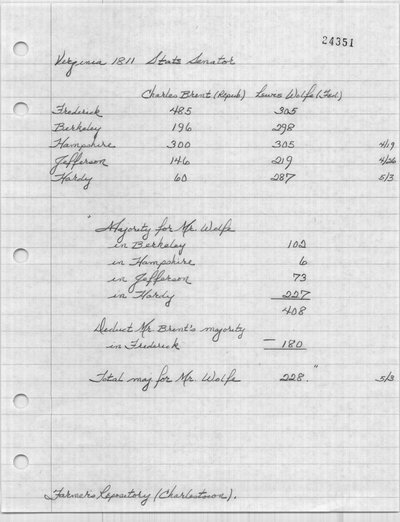 24351
Virginia 1811 State Senator
Charles Brent (Repub) Lewis Wolfe (Fed)
Frederick 485 305
Berkeley 196 298
Hampshire 300 305 4/19
Jefferson 146 219 4/26
Hardy 60 287 5/3
" Majority for Mr. Wolfe
in Berkeley 102
in Hampshire 6
in Jefferson 73
in Hardy 227
408
Deduct Mr. Brent's majority
in Frederick — 180
Total maj for Mr. Wolfe 228." 5/3
Farmer's Repository (Charlestown).